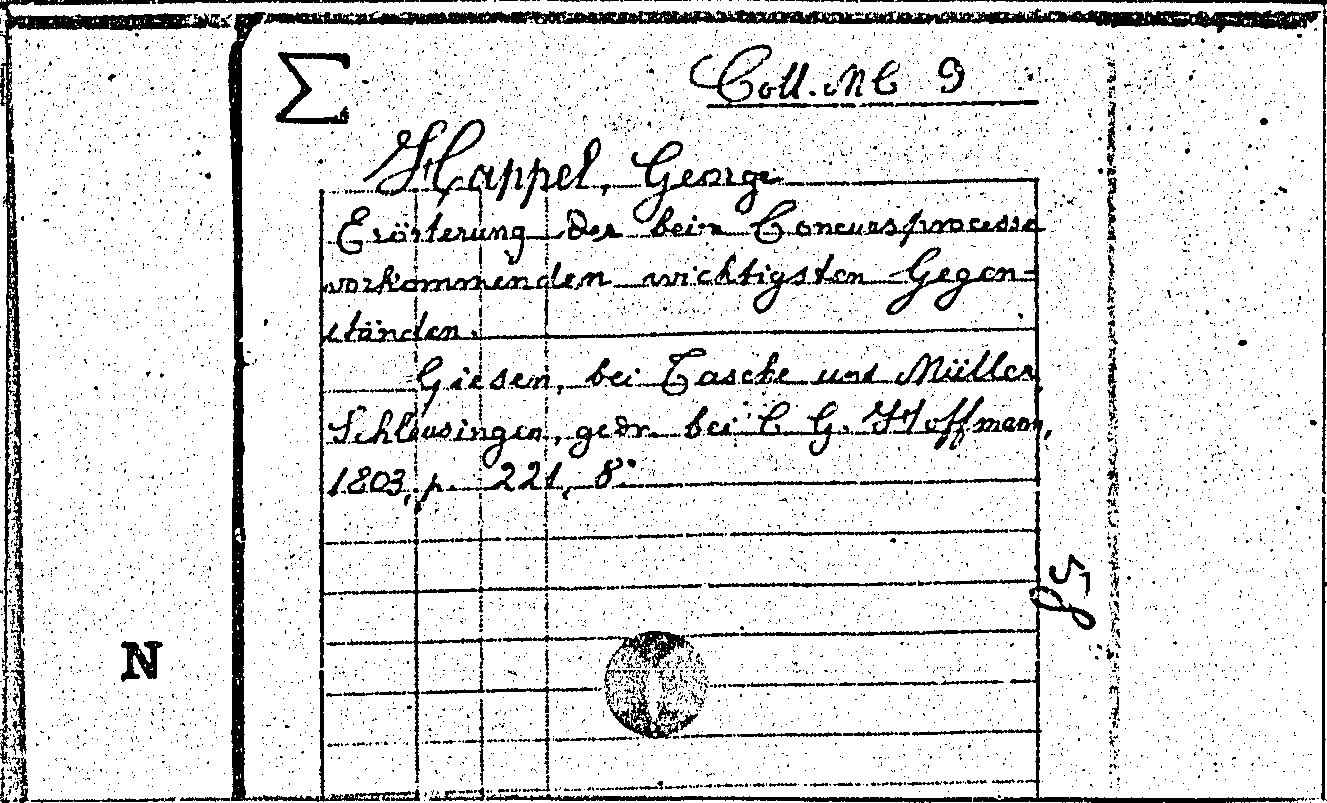 Σ
Coll. NC 9
Happel, George
Erörterung der beim Concursprocesse
vorkommenden wichtigsten Gegen=
ständen.
Giesen, bei Tasche und Müller,
Schleusingen, gedr. bei C. G. Hoffmann,
1803, p. 221, 8°
N
85